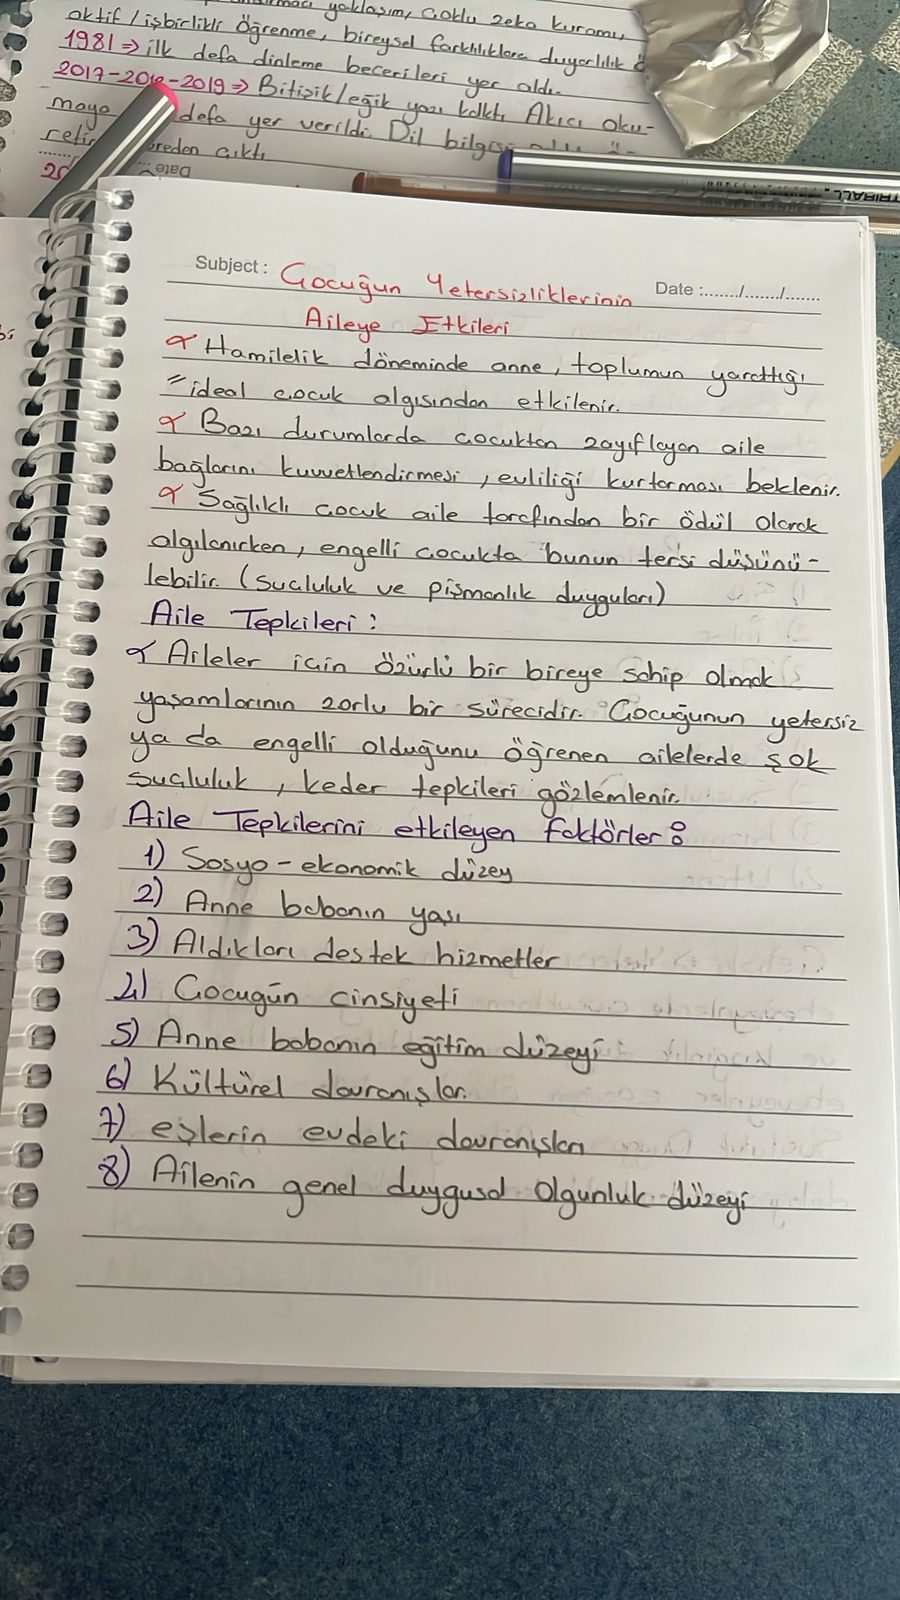 yaklaşım, çoklu zeka kuramı,
aktif/işbirlikli öğrenme, bireysel farklılıklara duyarlılık
1981 => ilk defa dinleme becerileri yer aldı.
2017-2018-2019 => Bitişik/eğik yazı kalktı Akıcı oku-
maya defa yer verildi. Dil bilgisi
reden çıktı
Date
TRIBALL
Subject : Çocuğun Yetersizliklerinin Date :....../....../......
Aileye Etkileri
∝ Hamilelik döneminde anne, toplumun yarattığı
"ideal çocuk algısından etkilenir.
∝ Bazı durumlarda çocuktan zayıflayan aile
bağlarını kuvvetlendirmesi, evliliği kurtarması beklenir.
∝ Sağlıklı çocuk aile tarafından bir ödül olarak
algılanırken, engelli çocukta bunun tersi düşünü-
lebilir. (suçluluk ve pişmanlık duyguları)
Aile Tepkileri :
∝ Aileler için özürlü bir bireye sahip olmak
yaşamlarının zorlu bir sürecidir. Çocuğunun yetersiz
ya da engelli olduğunu öğrenen ailelerde şok
suçluluk, keder tepkileri gözlemlenir.
Aile Tepkilerini etkileyen faktörler :
1) Sosyo-ekonomik düzey
2) Anne babanın yaşı
3) Aldıkları destek hizmetler
4) Çocugün cinsiyeti
5) Anne babanın eğitim düzeyi
6) Kültürel davranışlar.
7) eşlerin evdeki davranışları
8) Ailenin genel duygusal olgunluk düzeyi